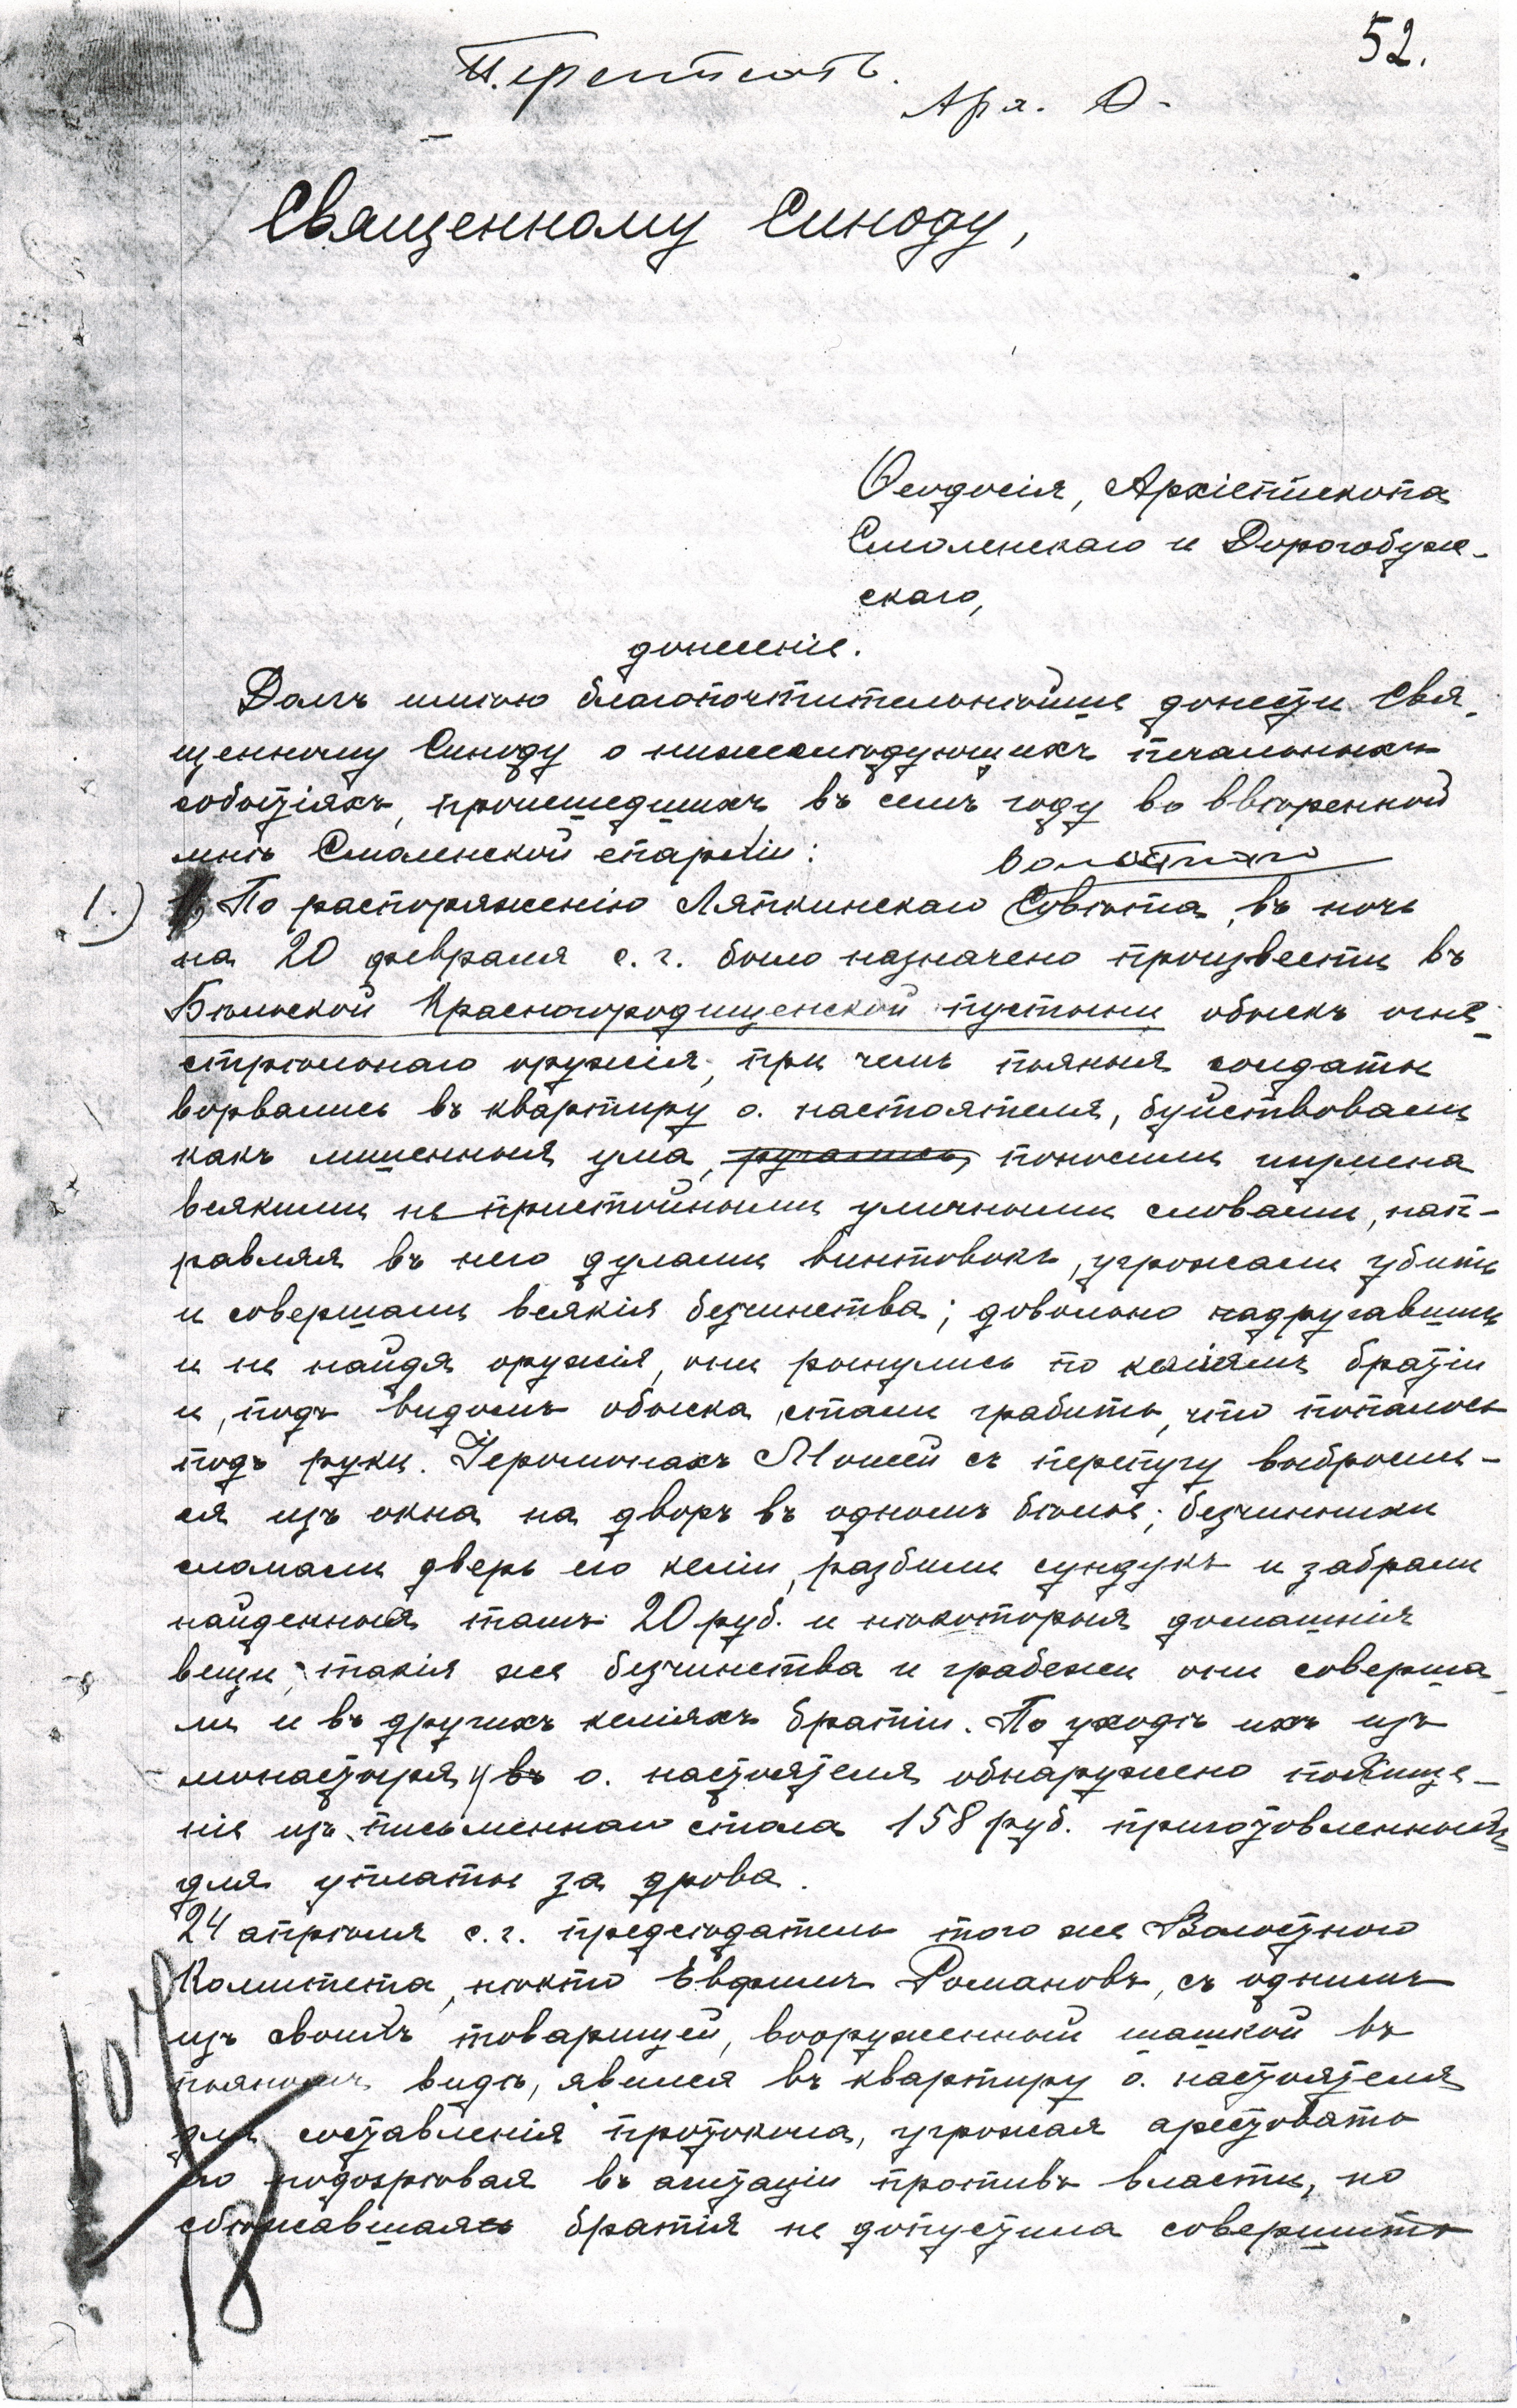 52.
Переписать.
Арх. Ѳ.
Священному Синоду,
Ѳеодосія, Архіепископа
Смоленскаго и Дорогобуж-
скаго,
донесеніе.
Долгъ имѣю благопочтительнѣйше донести Свя-
щенному Синоду о нижеслѣдующихъ печальныхъ
событіяхъ, происшедшихъ въ семъ году во ввѣренной
мнѣ Смоленской епархіи:
волостного
1.) 1) По распоряженію Ляпкинскаго Совѣта, въ ночь
на 20 февраля с. г. было назначено произвести въ
Бѣльской Красногородищенской пустыни обыскъ огне-
стрѣльнаго оружія, при чемъ пьяныя солдаты
ворвались въ квартиру о. настоятеля, буйствовали
какъ лишенныя ума, ругались, поносили игумена
всякими непристойными уличными словами, нап-
равляя въ него дулами винтовокъ, угрожали убить
и совершали всякія безчинства; довольно надругавшись
и не найдя оружія, они ринулись по келіямъ братіи
и, подъ видомъ обыска, стали грабить, что попалось
подъ руки. Іеромонахъ Моисей съ перепугу выбросил-
ся изъ окна на дворъ въ одномъ бѣльѣ; безчинники
сломали дверь его келіи, разбили сундукъ и забрали
найденныя тамъ 20 руб. и нѣкоторыя домашнія
вещи; такія же безчинства и грабежи они соверша-
ли и въ другихъ келіяхъ братіи. По уходѣ ихъ изъ
монастыря, у въ о. настоятеля обнаружено похище-
ніе изъ письменнаго стола 158 руб. приготовленныхъ
для уплаты за дрова.
24 апрѣля с. г. предсѣдатель того же Волостного
Комитета, нѣкто Евфимъ Романовъ, съ однимъ
изъ своихъ товарищей, вооруженный шашкой въ
пьяномъ видѣ, явился въ квартиру о. настоятеля
для составленія протокола, угрожая арестовать
его подозрѣвая въ агитаціи противъ власти, но
сбѣжавшаяся братія не допустила совершить